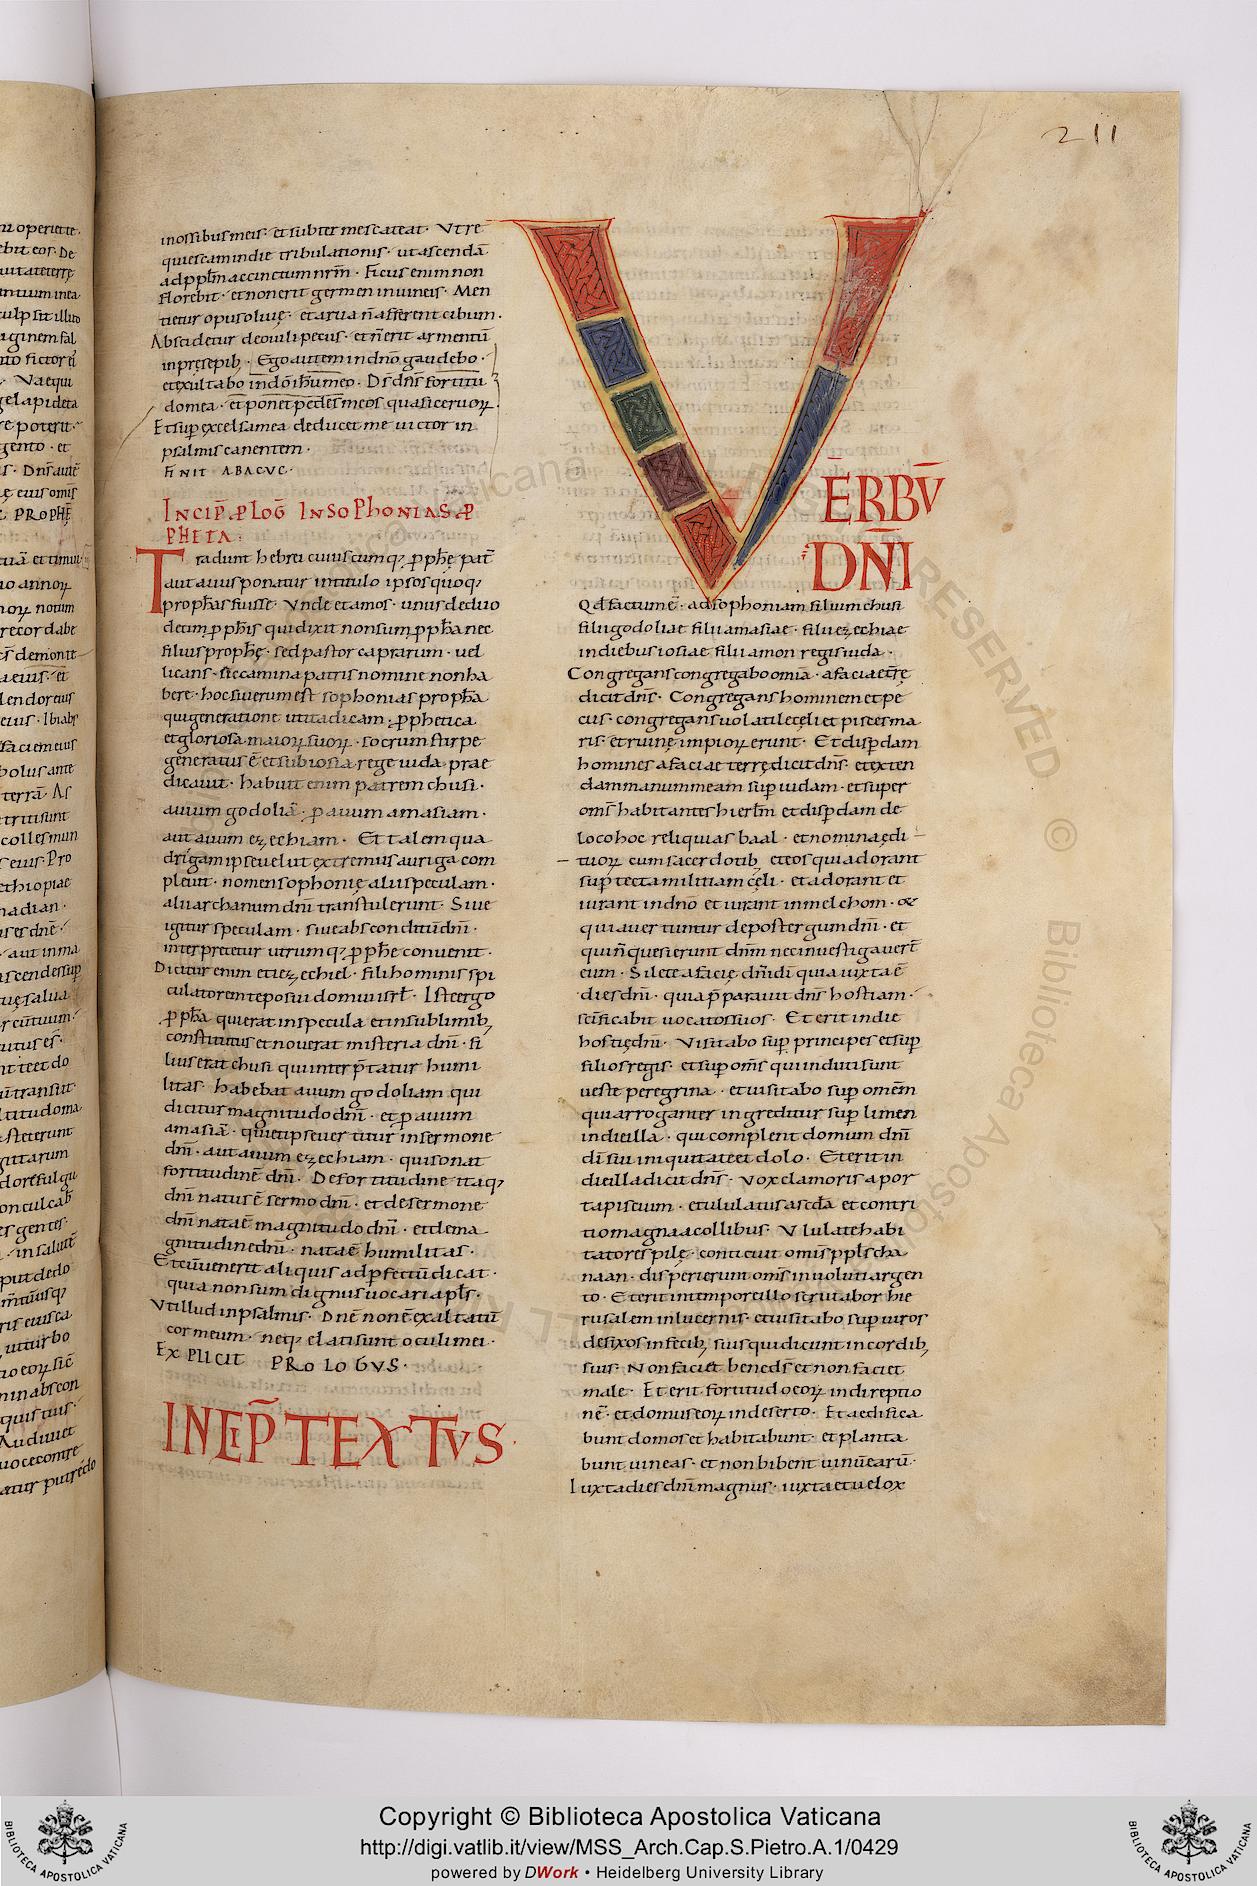 211
in ossibus meis · et subter me scateat · Vt re
quiescam in die tribulationis · ut ascendā
ad pp̄lm accinctum nr̄m · Ficus enim non
florebit · et non erit germen in uineis · Men
tietur opus oliuę · et arua ñ afferent cibum ·
Abscidetur de ouili pecus · et ñ erit armentū
in pręsepib; · Ego autem in dn̄o gaudebo ·
et exultabo in dō ih̄u meo · Ds̄ dn̄s fortitu
do mea · et ponet pedes meos quasi ceruoꝝ ·
Et sup̄ excelsa mea deducet me uictor in
psalmis canentem ·
FINIT ABACVC ·
INCIP̄ ꝓLOḠ IN SOPHONIAS ꝓ
PHETA ·
Tradunt hebrei cuiuscumq; ꝓph̄ę pat̄
aut auus ponatur in titulo ipsos quoq;
prophas̄ fuisse · Vnde et amos · unus de duo
decim ꝓph̄is qui dixit non sum ꝓph̄a nec
filius proph̄ę · sed pastor caprarum · uel
licans · siccamina patris nomine non ha
bere · hoc si uerum est sophonias proph̄a
qui generatione ut ita dicam · ꝓphetica
et gloriosa maioꝝ suoꝝ · socrum stirpe
generatus ē et sub iosia rege iuda prae
dicauit · habuit enim patrem chusi ·
auum godoliā · ꝓauum amasiam ·
aut auum ezechiam · Et talem qua
drigam ipse uelut extremus auriga com
pleuit · nomen sophonię alii speculam ·
alii archanum dn̄i transtulerunt · Siue
igitur speculam · siue absconditū dn̄i ·
interpretetur utrumq; ꝓph̄e conuenit ·
Dicitur enim et iezechiel · fili hominis spi
culatorem te posui domui isrl̄ · Iste ergo
ꝓph̄a qui erat in specula et in sublimib;
constitutus et nouerat misteria dn̄i · fi
lius erat chusi qui interp̄tatur humi
litas · habebat auum godoliam qui
dicitur magnitudo dn̄i · et ꝓauum
amasiā · qui et ipse uertitur in sermone
dn̄i · aut auum ezechiam · qui sonat
fortitudinē dn̄i · De fortitudine itaq;
dn̄i natus ē sermo dn̄i · et de sermone
dn̄i nata ē magnitudo dn̄i · et de ma
gnitudine dn̄i · nata ē humilitas ·
Et cū uenerit aliquis ad ꝑfectū dicat ·
quia non sum dignus uocari apl̄s ·
Vt illud in psalmis · Dn̄e non ē exaltatū
cor meum · neq; elati sunt oculi mei ·
EXPLICIT PROLOGVS ·
INCIP̄ TEXTVS ·
VERBV̄
DN̄I
Qd factum ē · ad sophoniam filium chusi
filii godoliae filii amasiae · filii ezechiae
in diebus iosiae filii amon regis iuda ·
Congregans congregabo omīa · a facia et̄rę
dicit dn̄s · Congregans hominem et pe
cus · congregans uolatile cęli et pisces ma
ris · et ruinę impioꝝ erunt · Et disꝑdam
homines a faciae terrę dicit dn̄s · et exten
dam manum meam sup̄ iudam · et super
oms̄ habitantes hierl̄m et disꝑdam de
loco hoc reliquias baal · et nomina ędi
tuoꝝ cum sacerdotib; et eos qui adorant
sup̄ tecta militiam cęli · et adorant et
iurant in dn̄o et iurant in melchom · &
qui auertuntur de post ergum dn̄i · et
qui ñ quesierunt dn̄m nec inuestigauert̄
eum · Silete a facię dn̄i dī quia iuxta ē
dies dn̄i · quia p̄parauit dn̄s hostiam ·
sc̄ificabit uocatos suos · Et erit in die
hostię dn̄i · Visitabo sup̄ principes et sup̄
filios regis · et sup̄ oms̄ qui induti sunt
ueste peregrina · et uisitabo sup̄ omēm
qui arroganter ingreditur sup̄ limen
in die illa · qui complent domum dn̄i
dī sui iniquitate et dolo · Et erit in
die illa dicit dn̄s · Vox clamoris a por
ta piscium · et ululatus a scd̄a et contri
tio magna a collibus · Vlulate habi
tatores pilę · conticuit omis ppl̄s cha
naan · disperierunt oms̄ inuoluti argen
to · Et erit in tempore illo scrutabor hie
rusalem in lucernis · et uisitabo sup̄ uiros
defixos in fecib; suis qui dicunt in cordib;
suis · Non faciet bene ds̄ et non faciet
male · Et erit fortitudo eoꝝ in direptio
nē · et domus eoꝝ in deserto · Et aedifica
bunt domos et habitabunt · et planta
bunt uineas · et non bibent uinū earū ·
Iuxta dies dn̄i magnus · iuxta et uelox
Copyright © Biblioteca Apostolica Vaticana
http://digi.vatlib.it/view/MSS_Arch.Cap.S.Pietro.A.1/0429
powered by DWork • Heidelberg University Library
BIBLIOTECA APOSTOLICA VATICANA
BIBLIOTECA APOSTOLICA VATICANA